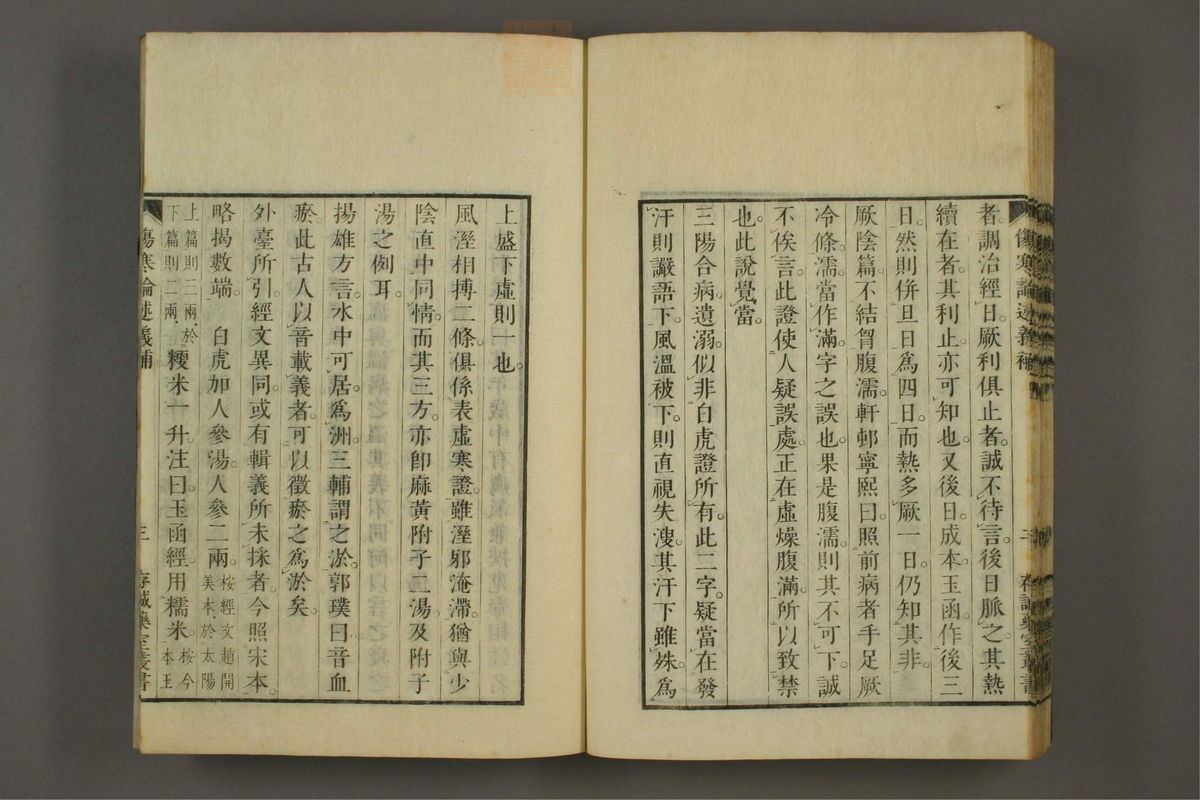 傷寒論述義補
存誠藥室叢書
者。調治經日。厥利俱止者。誠不待言。後日脈之。其熱
續在者。其利止。亦可知也。又後日。成本玉函。作後三
日。然則併旦日爲四日。而熱多厥一日。仍知其非。
厥陰篇。不結胷腹濡。軒邨寧熙曰。照前病者手足厥
冷條。濡當作滿。字之誤也。果是腹濡。則其不可下。誠
不俟言。此證使人疑誤處。正在虛燥腹滿。所以致禁
也。此說覺當。
三陽合病。遺溺。似非白虎證所有。此二字。疑當在發
汗則讝語下。風溫被下。則直視失溲。其汗下雖殊。爲
上盛下虛則一也。
風溼相搏二條。俱係表虛寒證。雖溼邪淹滯。猶與少
陰直中同情。而其三方。亦卽麻黃附子二湯。及附子
湯之例耳。
揚雄方言。水中可居。爲洲。三輔謂之淤。郭璞曰。音血
瘀。此古人以音載義者。可以徵瘀之爲淤矣。
外臺所引。經文異同。或有輯義所未採者。今照宋本。
略揭數端。 白虎加人參湯。人參二兩。桉經文趙開美本。於太陽
上篇則三兩。於下篇則二兩。 粳米一升。注曰。玉函經用糯米。桉今本玉
傷寒論述義補
三
存誠藥室叢書